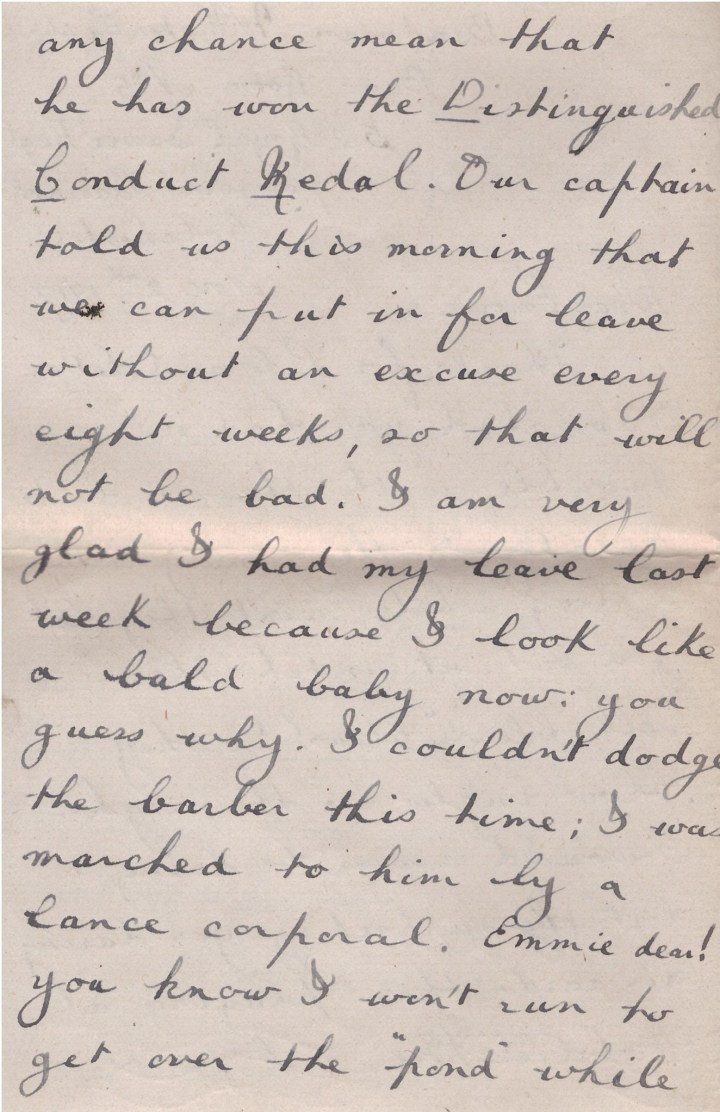 any chance mean that
he has won the Distinguished
Conduct Medal. Our captain
told us this morning that
we can put in for leave
without an excuse every
eight weeks, so that will
not be bad. I am very
glad I had my leave last
week because I look like
a bald baby now: you
guess why. I couldn't dodge
the barber this time; I was
marched to him by a
lance corporal. Emmie dear!
you know I won't run to
get over the "pond" while